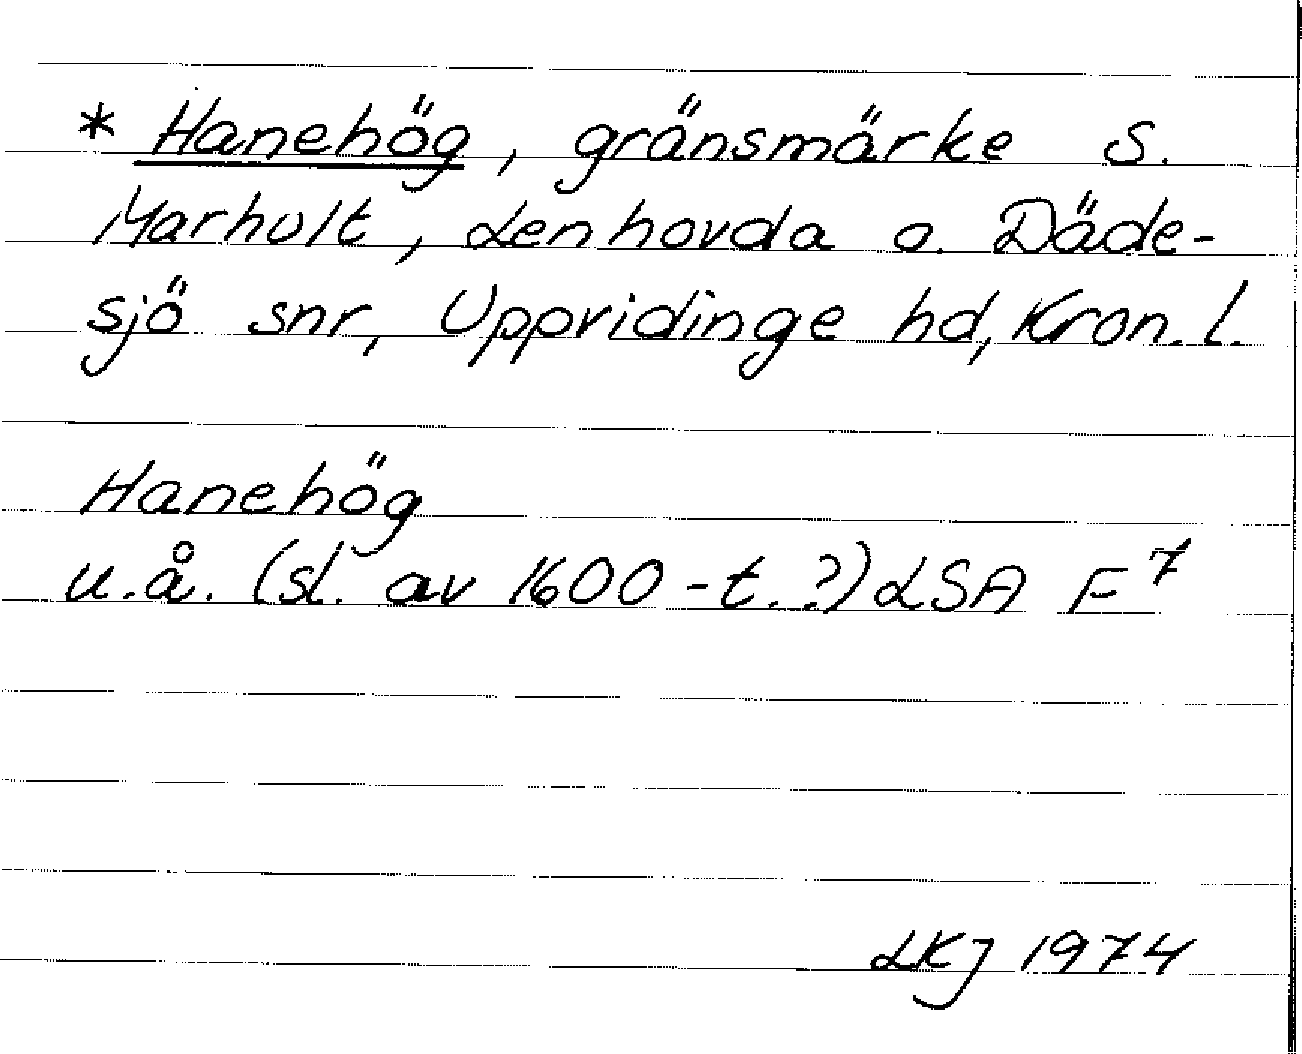 * Hanehög, gränsmärke S.
Marhult, Lenhovda o. Däde-
sjö snr, Uppvidinge hd, Kron. l.
Hanehög
u.å. (sl. av 1600-t.?) LSA F⁷
LKJ 1974